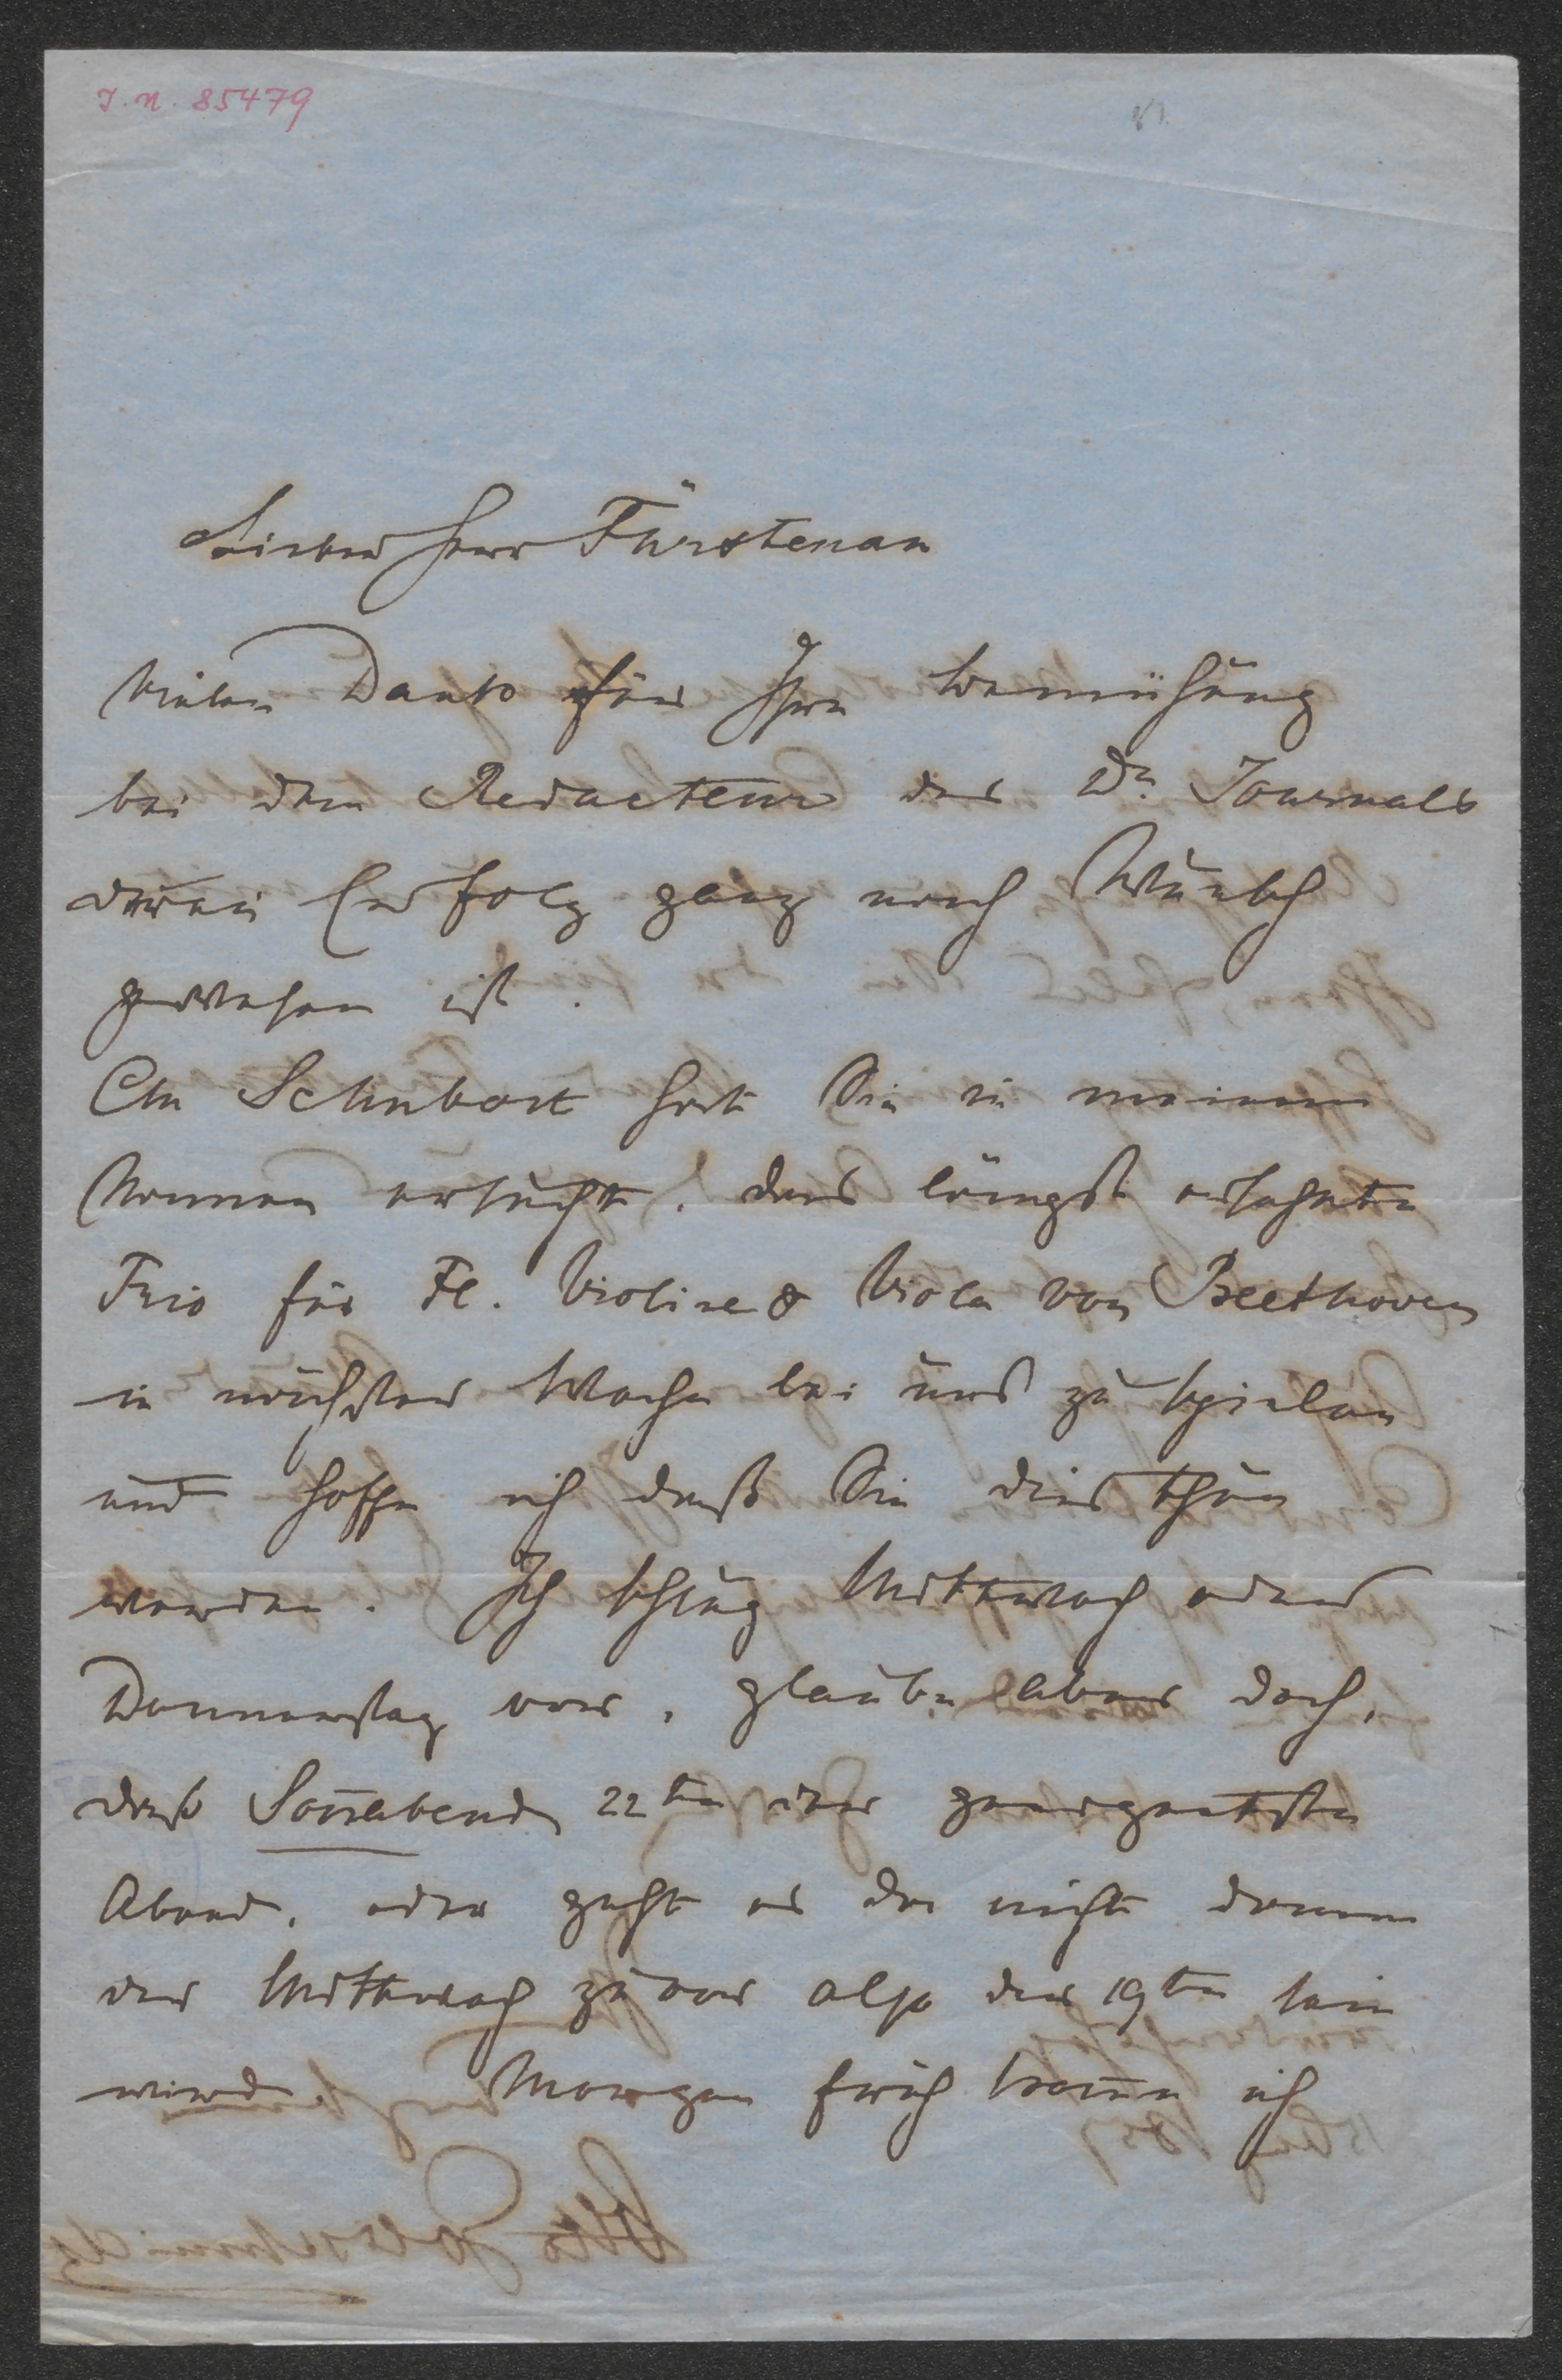 I. N. 85479
Lieber Herr Fürstenau
Vielen Dank für Ihre Bemühung
bei dem Redacteur des Dr. Journals
deren Erfolg ganz nach Wunsch
gewesen ist.
Schubert hat Sie in meinem
Namen ersucht, das längst ersehnte
Trio für Fl. Violine & Viola von Beethoven
in nächster Woche bei uns zu spielen
und hoffe ich daß Sie dies thun
werden. Ich schlug Mittwoch oder
Donnerstag vor, glaube aber doch,
daß Sonnabend 22ten der geeignetste
Abend, oder geht es da nicht dann
der Mittwoch zuvor also der 19te sein
wird. Morgen früh komme ich